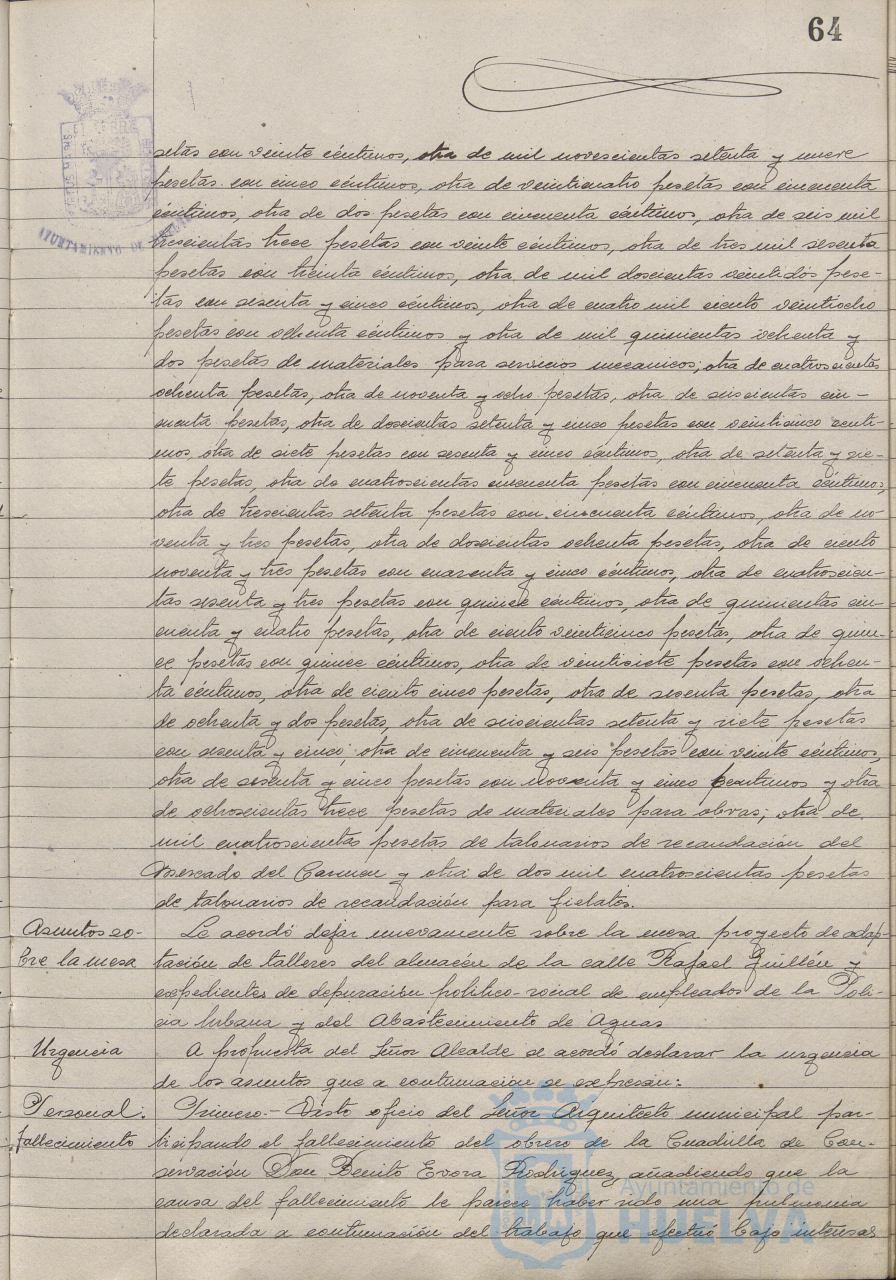 64
setas con veinte céntimos, otra de mil novescientas setenta y nueve
pesetas con cinco céntimos, otra de veinticuatro pesetas con cincuenta
céntimos, otra de dos pesetas con cincuenta céntimos, otra de seis mil
trescientas trece pesetas con veinte céntimos, otra de tres mil sesenta
pesetas con treinta céntimos, otra de mil doscientas veintidós pese-
tas con sesenta y cinco céntimos, otra de cuatro mil ciento veintiocho
pesetas con ochenta céntimos y otra de mil quinientas ochenta y
dos pesetas de materiales para servicios mecanicos; otra de cuatroscientas
ochenta pesetas, otra de noventa y ocho pesetas, otra de seiscientas cin-
cuenta pesetas, otra de doscientas setenta y cinco pesetas con veinticinco centi-
mos, otra de siete pesetas con sesenta y cinco céntimos, otra de setenta y sie-
te pesetas, otra de cuatroscientas cincuenta pesetas con cincuenta céntimos,
otra de trescientas setenta pesetas con cincuenta céntimos, otra de no-
venta y tres pesetas, otra de doscientas ochenta pesetas, otra de ciento
noventa y tres pesetas con cuarenta y cinco céntimos, otra de cuatroscien-
tas sesenta y tres pesetas con quince céntimos, otra de quinientas cin-
cuenta y cuatro pesetas, otra de ciento veinticinco pesetas, otra de quin-
ce pesetas con quince céntimos, otra de veintisiete pesetas con ochen-
ta céntimos, otra de ciento cinco pesetas, otra de sesenta pesetas, otra
de ochenta y dos pesetas, otra de seiscientas setenta y siete pesetas
con sesenta y cinco; otra de cincuenta y seis pesetas con veinte céntimos,
otra de sesenta y cinco pesetas con noventa y cinco centimos y otra
de ochoscientas trece pesetas de materiales para obras; otra de
mil cuatroscientas pesetas de talonarios de recaudación del
Mercado del Carmen y otra de dos mil cuatroscientas pesetas
de talonarios de recaudación para fielatos.
Asuntos so-
bre la mesa
Se acordó dejar nuevamente sobre la mesa proyecto de adap-
tación de talleres del almacén de la calle Rafael Guillén y
expedientes de depuración político-social de empleados de la Poli-
cia Urbana y del Abastecimiento de Aguas
Urgencia
A propuesta del Señor Alcalde se acordó declarar la urgencia
de los asuntos que a continuación se expresan:
Personal:
fallecimiento
Primero.- Visto oficio del Señor Arquitecto municipal par-
ticipando el fallecimiento del obrero de la Cuadrilla de Con-
servación Don Benito Evora Rodriguez añadiendo que la
causa del fallecimiento le parece haber sido una pulmonia
declarada a continuación del trabajo que efectuó bajo intensas
AYUNTAMIENTO DE
Ayuntamiento de
HUELVA